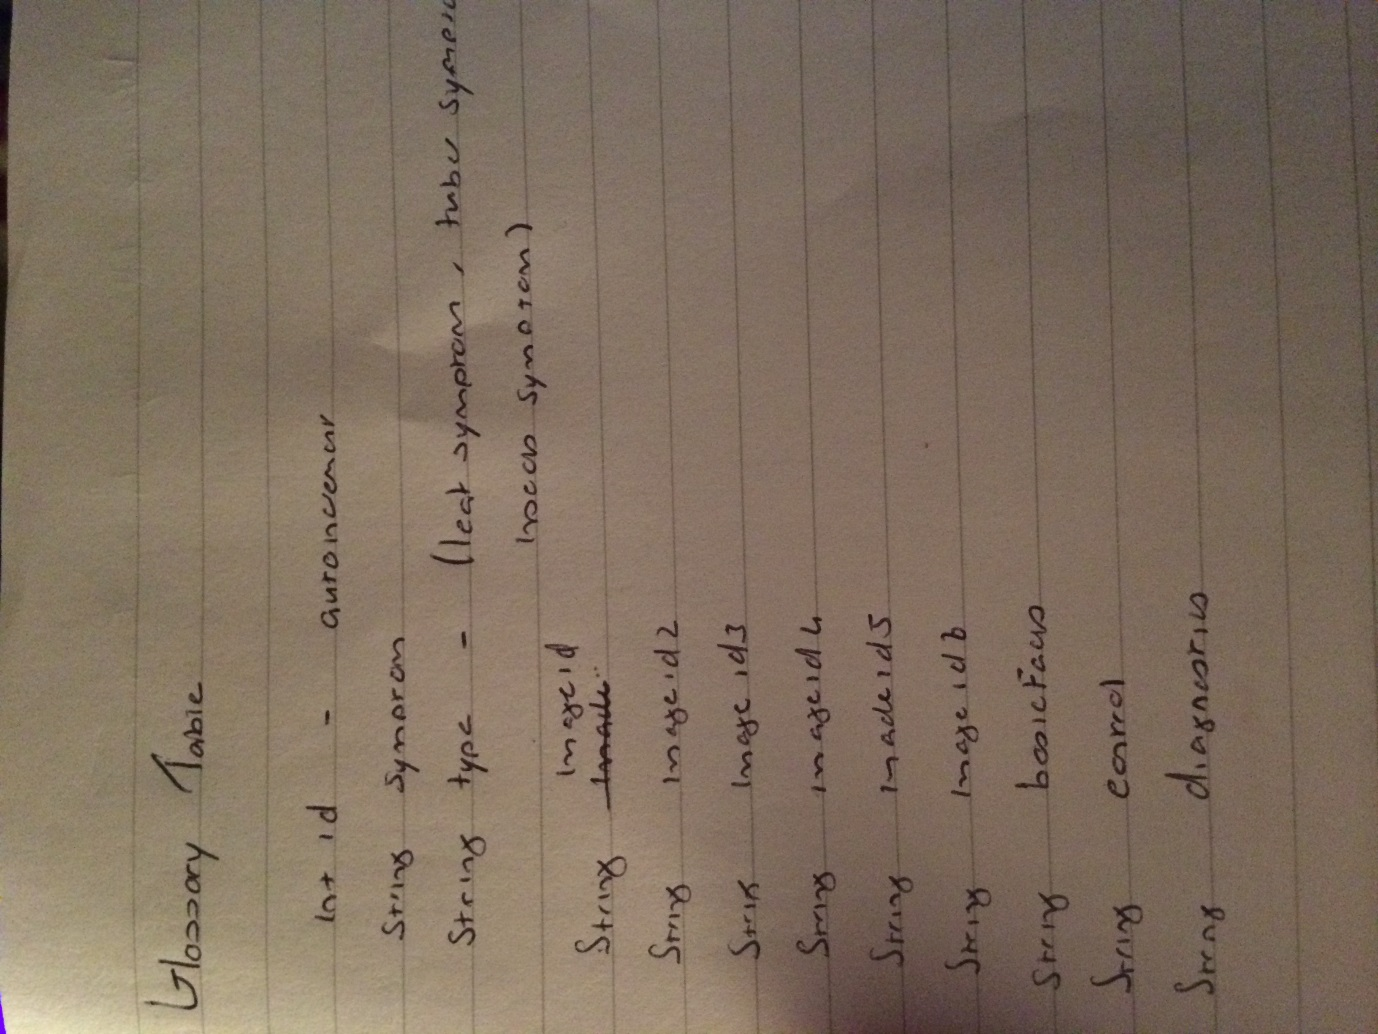 Glossary Table
Int id - autoincrement
String Symptom
String type - (leaf symptom, tuber symptom
Insects symptom)
String Imageid
String Imageid2
String Imageid3
String imageid4
String imadeid5
String Imageid6
String basicFacts
String control
String diagnostics